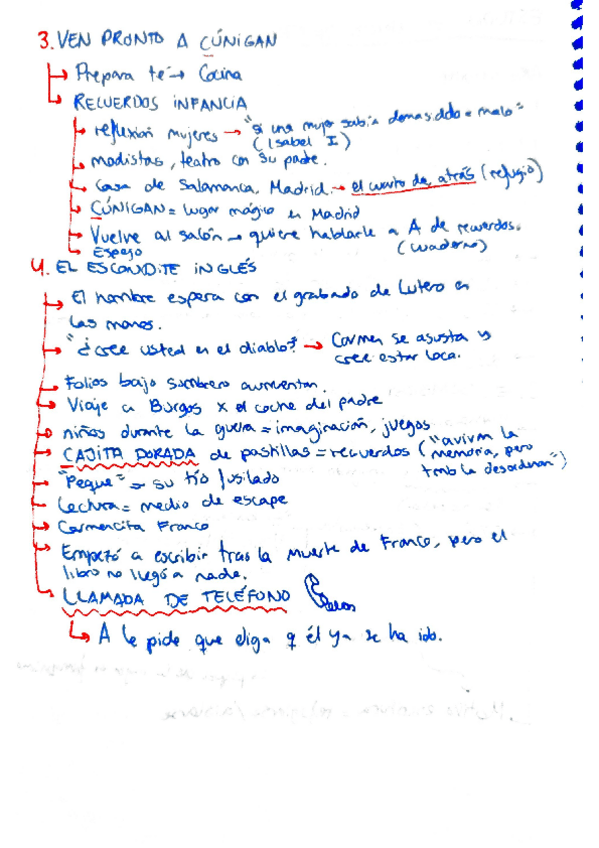 3. VEN PRONTO A CÚNIGAN
Prepara té → Cocina
RECUERDOS INFANCIA
reflexión mujeres → "si una mujer sabía demasiado = malo"
(Isabel I)
modistas, teatro con su padre.
Casa de Salamanca, Madrid. → el cuarto de atrás (refugio)
CÚNIGAN = lugar mágico en Madrid
Vuelve al salón → quiere hablarle a A de recuerdos.
(cuaderno)
Espejo
4. EL ESCONDITE INGLÉS
El hombre espera con el grabado de Lutero en
las manos.
"¿cree usted en el diablo?" → Carmen se asusta y
cree estar loca.
Folios bajo sombrero aumentan.
Viaje a Burgos x el coche del padre
niños durante la guerra = imaginación, juegos
CAJITA DORADA de pastillas = recuerdos ("avivan la
memoria, pero
tmb la desordenan")
"Peque" = su tío fusilado
Lectura = medio de escape
Carmencita Franco
Empezó a escribir tras la muerte de Franco, pero el
libro no llegó a nada.
LLAMADA DE TELÉFONO
A le pide que diga q él ya se ha ido.